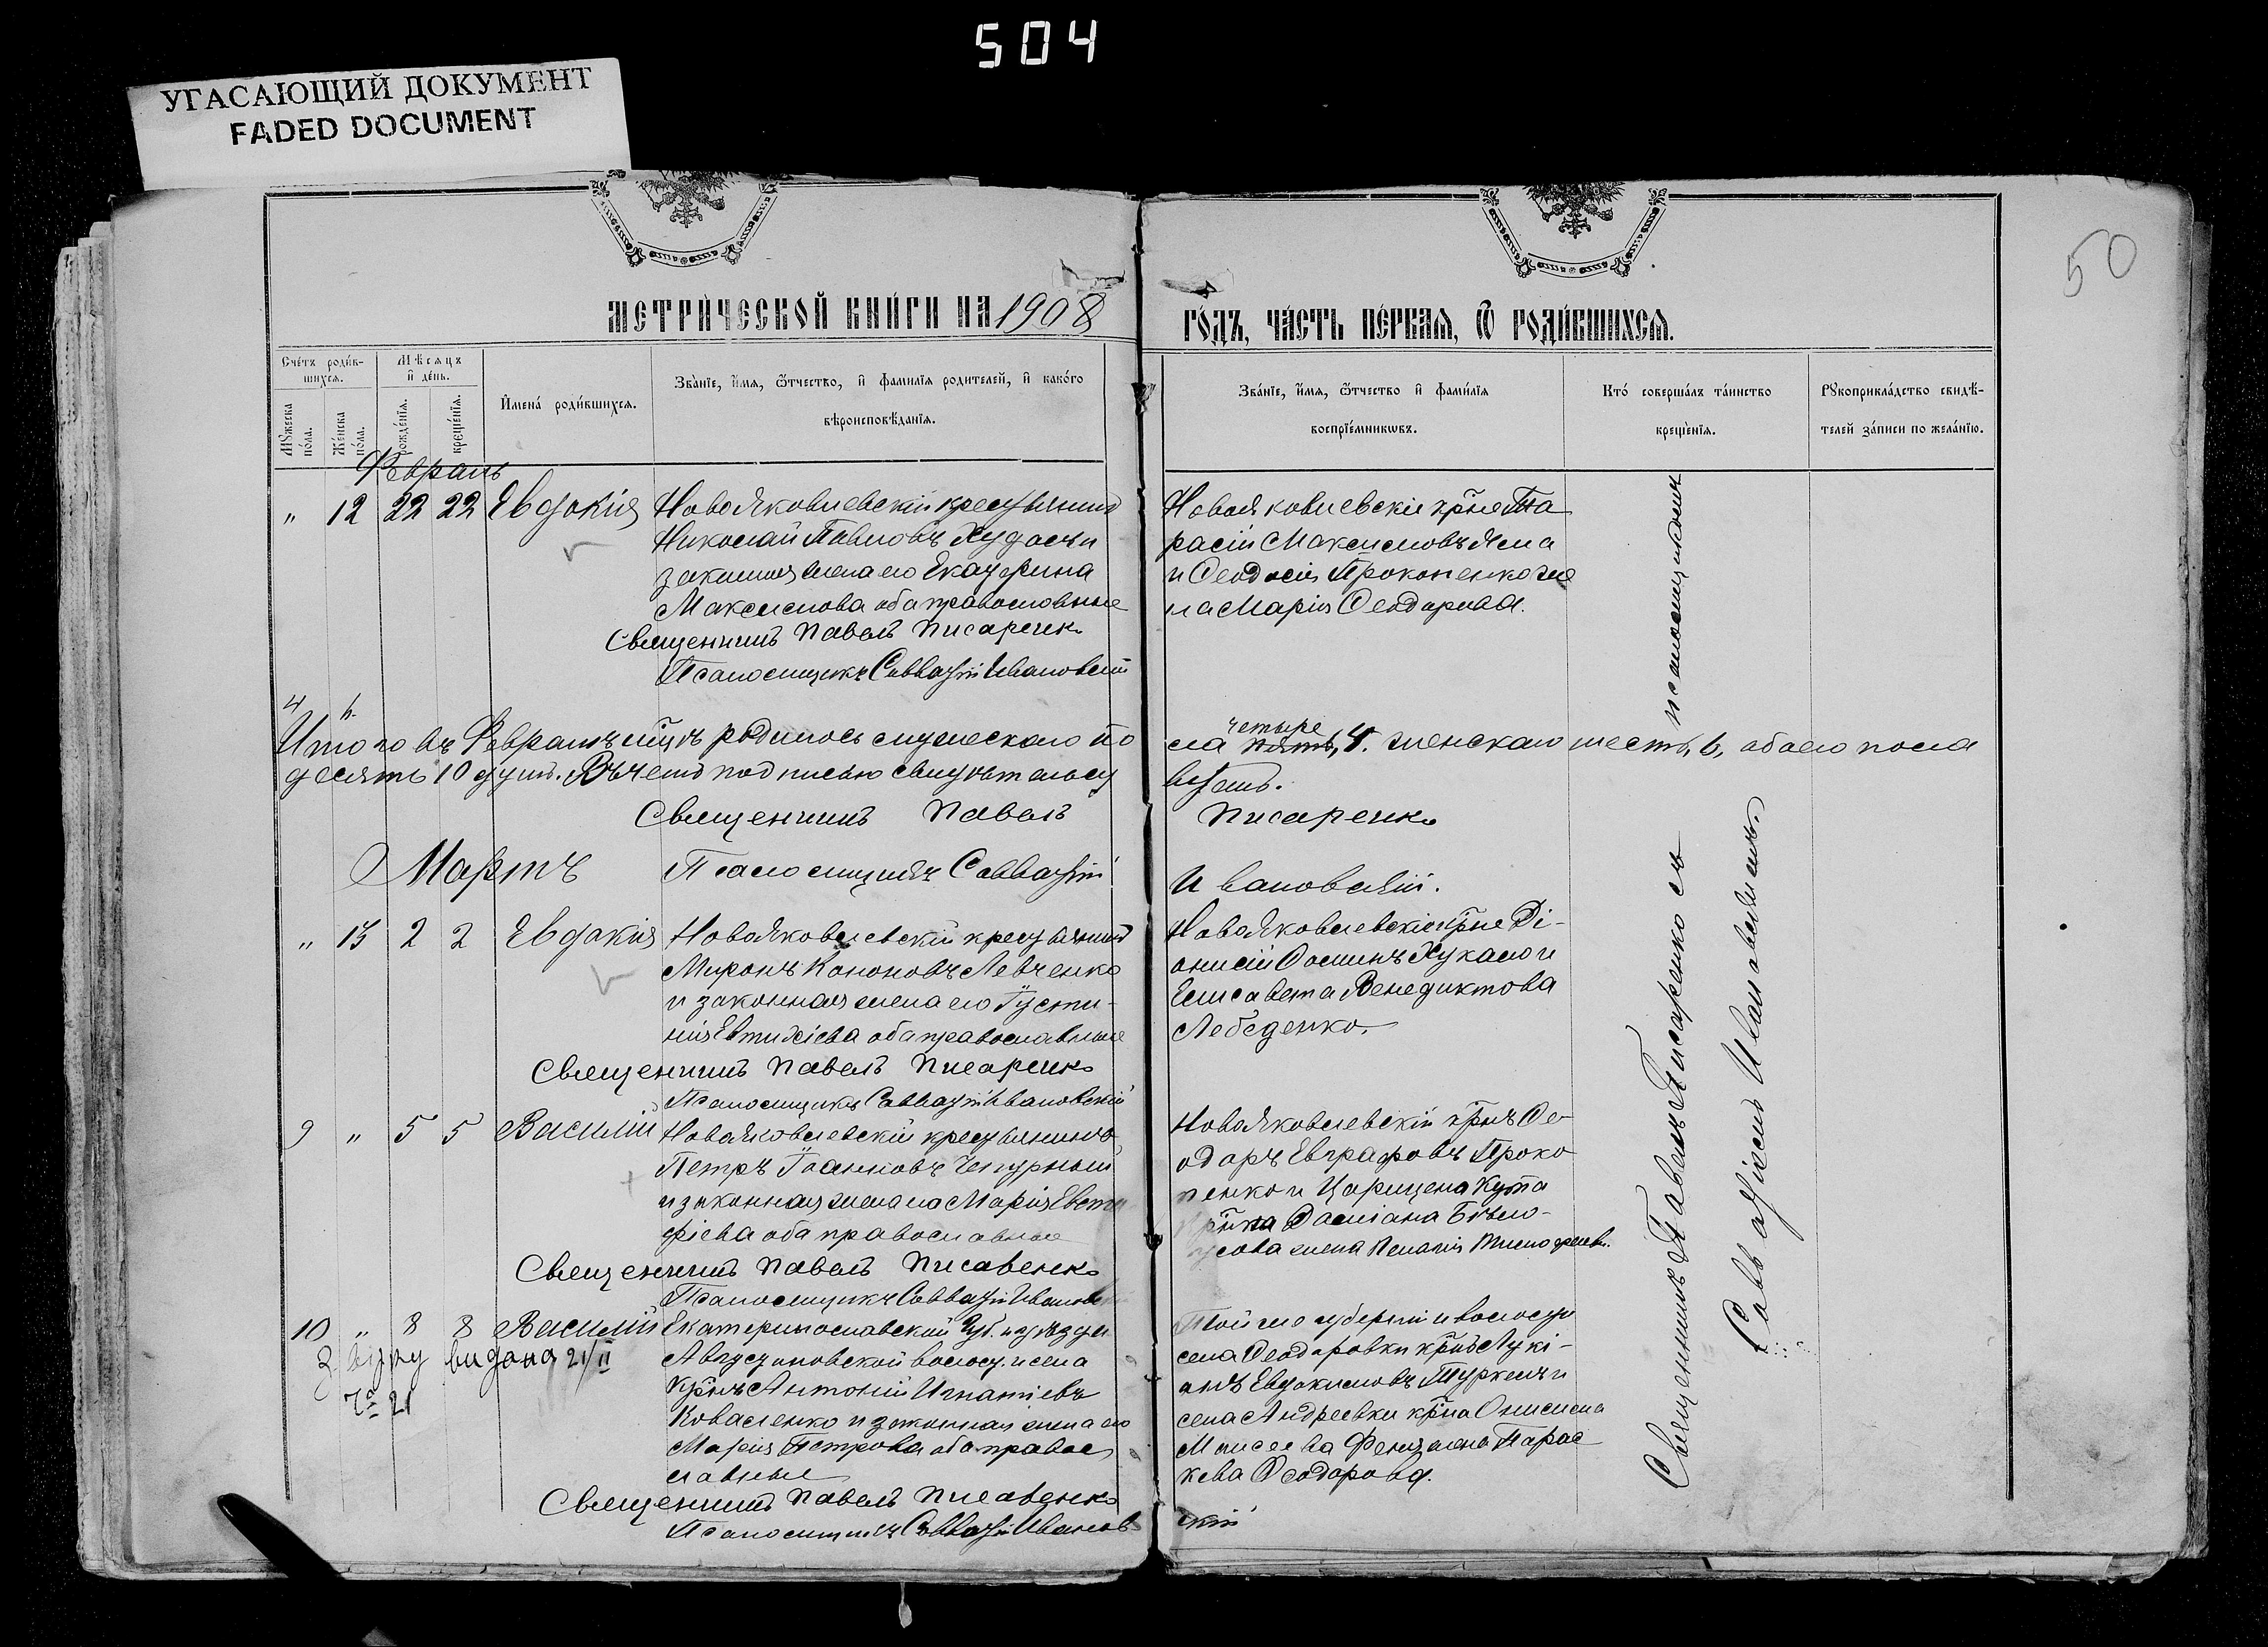 504
УГАСАЮЩИЙ ДОКУМЕНТ
FADED DOCUMENT
50
МЕТРИЧЕСКОЙ КНИГИ НА 1908
ГОДЪ, ЧАСТЬ ПЕРВАЯ, Ѿ РОДИВШИХСЯ.
Счетъ родив-
шихся.
Мѣсяцъ
и день.
Мужеска
пола.
Женска
пола.
рожденія.
крещенія.
Имена родившихся.
Званіе, имя, ѿтчество, и фамилія родителей, и какого
вѣроисповѣданія.
Званіе, имя, ѿтчество и фамилія
воспріемниковъ.
Кто совершалъ таинство
крещенія.
Рукоприкладство свидѣ-
телей записи по желанію.
Февраль
" 12 22 22 Евдокія
Новояковлевскій крестьянинъ
Николай Павловъ и
законная жена его Екатерина
Максимова оба православные
Священникъ Павелъ Писаренко
Псаломщикъ Савватій Ивановскій
Новояковлевскіе кр̃не Та
расій Максимовъ
и Феодосія Прокопенко же
на Марія Феодорова.
4 6
Итого въ Февралѣ мц̃ѣ родилось мужескаго по
ла четыре пять, 4. женскаго шесть, 6, обоего пола
десять 10 душъ. Въ чемъ подписью свидѣтельст
вуемъ.
Священникъ Павелъ
Писаренко
Мартъ
Псаломщикъ Савватій
Ивановскій.
" 13 2 2 Евдокія
Новояковлевскій крестьянинъ
Миронъ Кононовъ Левченко
и законная жена его Густи-
нія Евтихіева оба православные
Священникъ Павелъ Писаренко
Псаломщикъ Савватій Ивановскій
Новояковлевскіе кр̃не Ді-
онисій Фоминъ и
Елисавета Венедиктова
Лебеденко.
9 " 5 5 Василій
Новояковлевскій крестьянинъ
Петръ Іоанновъ Чепурный
и законная жена его Марія Евста
фіева оба православные
Священникъ Павелъ Писаренко
Псаломщикъ Савватій Иванов
Новояковлевскій кр̃нъ Фе
одоръ Евграфовъ Проко
пенко и Царицена Кута
кр̃на Даміана Бѣло-
усова жена Пелагія
10 " 8 8 Василій
выдана 21/II
№ 21
Екатеринославской Губ. и уѣзда
Августиновской волост. и села
кр̃нъ Антоній Игнатіевъ
Коваленко и законная жена его
Марія Петрова оба правос
лавные
Священникъ Павелъ Писаренко
Псаломщикъ Савватій Иванов
скій
Той же губерніи и волости
села Феодоровки кр̃нъ Лукі-
анъ Евдокимовъ и
села Андреевки кр̃на Онисима
Моисеева жена Парас
кева Феодорова.
Священникъ Павелъ Писаренко съ псаломщикомъ
Савватіемъ Ивановскимъ.